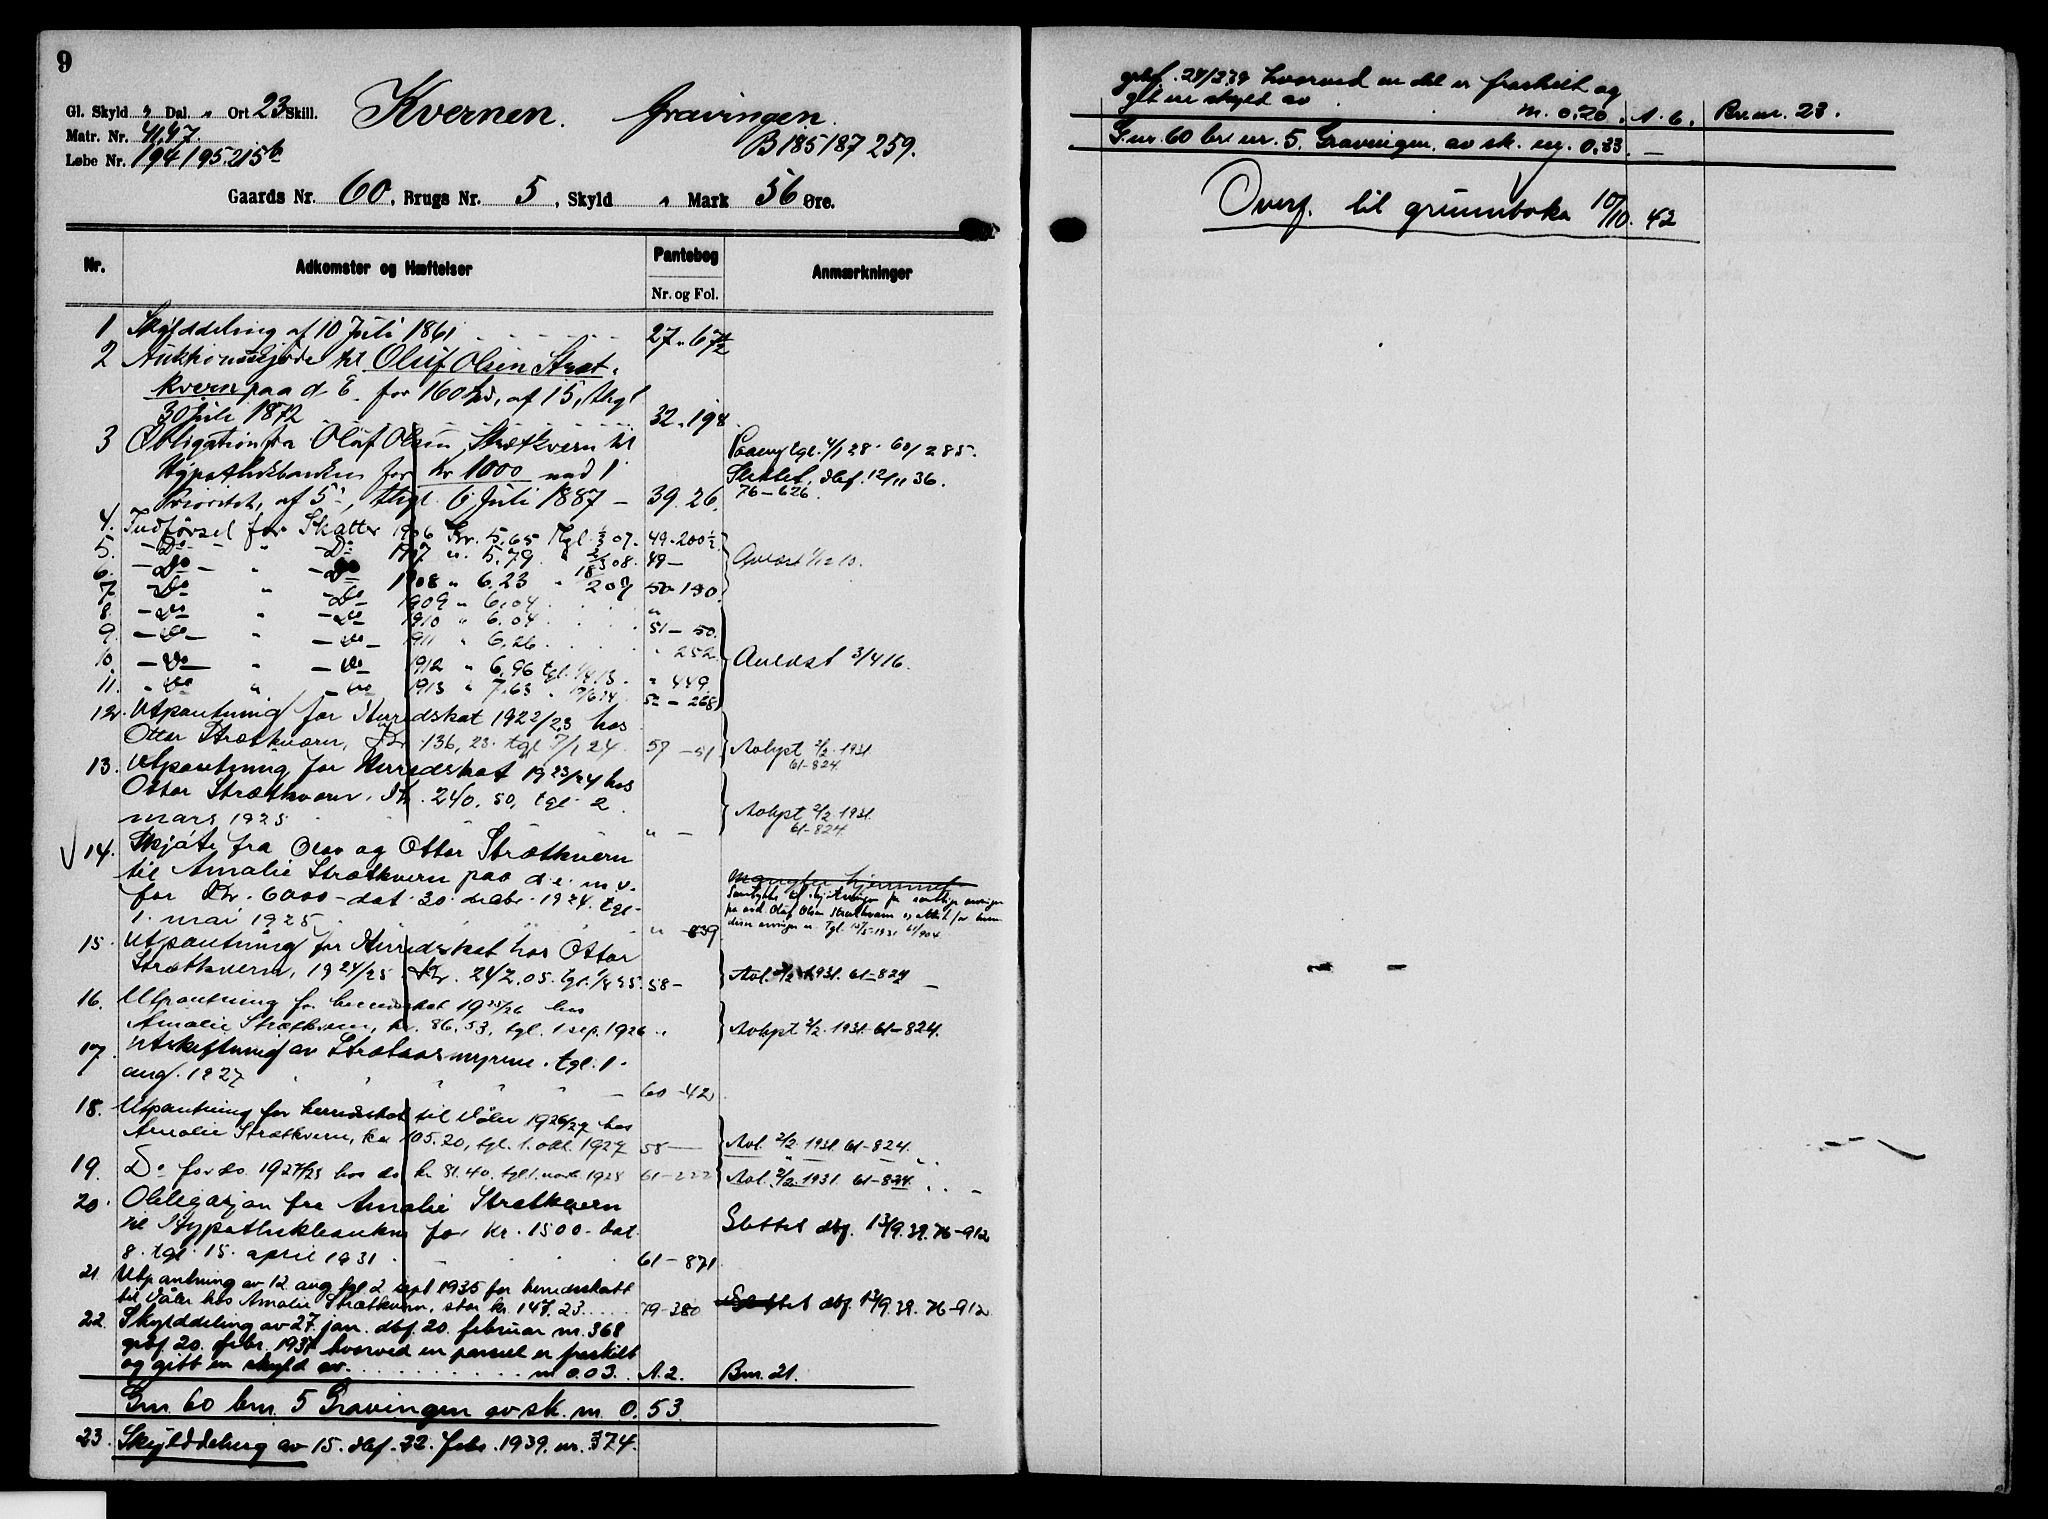 9
Gl. Skyld " Dal. " Ort 23 Skill. Kvernen. Gravingen.
Matr. Nr. 41.47.
Løbe Nr. 194 195. 215b B 185 187 259.
Gaards Nr. 60, Brugs Nr. 5, Skyld " Mark 56 Øre.
Nr. Adkomster og Hæftelser Pantebog Nr. og Fol. Anmærkninger
1 Skylddeling af 10 Juli 1861 27. 67 1/2
2 Auktionsskjøde til Oluf Olsen Stræt-
kvern paa d. E. for 160 Spd, af 15, thgl
30 Juli 1872 32. 198
3 Obligation fra Oluf Olsen Strætkvern til
Hypothekbanken for Kr 1000 mod 1
Prioritet, af 5, thgl. 6 Juli 1887 – 39. 26.
Slettet, dbf. 12/11 36.
76 – 626.
4. Indførsel for Skatter 1906 Kr. 5,65 Thgl. 07. 49-200 1/2
5. – Do – " – Do 1907 " 5.79 " 08. 49 –
6. – Do – " – Do 1908 " 6.23 " 50-190
7. – Do " – Do 1909 " 6.04 "
8. – Do " – Do 1910 " 6.04 51 – 50.
9. – Do – " – Do – 1911 " 6.26 " 252
10. – Do – " – Do 1912 " 6,96 tgl. " 449.
11. " Do " – Do 1913 " 7.63 " 52 – 268
Avløst 3/4 16.
12. Utpantning for Herredskat 1922/23 hos
Ottar Strætkvern, Kr. 136, 23. tgl. 7/1 24. 57 – 51 Avlyst 2/2. 1931.
61-824.
13. Utpantning for Herredskat 1923/24 hos
Ottar Strætkvern. Kr. 240.50, tgl. 2
mars 1925 " – Avlyst 2/2 1931.
61-824.
14. Skjøte fra Olav og Ottar Strætkvern
til Amalie Strætkvern paa d. e. m. v.
for Kr. 6000 – dat. 30. decbr. 1924. tgl.
1. mai 1925 " 839
mangler hjemmel
15. Utpantning for Herredskat hos Ottar
Strætkvern, 1924/25. Kr. 247.05. tgl. 58 – Avl. 2/2 1931. 61-824 –
16. Utpantning for herredskat 1925/26 hos
Amalie Strætkvern, kr. 86.53, tgl. 1 sep. 1926 " Avlyst 2/2. 1931. 61-824.
17. Utskiftning av Strætaasmyrene. tgl. 1.
aug. 1927 60 – 42
18. Utpantning for herredskat til Våler 1926/27 hos
Amalie Strætkvern, kr. 105.20, tgl. 1. okt. 1927 58 – Avl. 2/2. 1931. 61-824.
19. Do for do. 1927/28 hos do kr 81.40, tgl. 1. 1928 61-222 Avl. 2/2. 1931. 61-824.
20. Obligasjon fra Amalie Strætkvern
til Hypothekbanken for kr. 1500 – dat.
8. tgl. 15. april 1931 61 – 871 Slettet dbf. 13/9. 39. 76-912
21. Utpantning av 12 aug. tgl 2 sept 1935 for herredsskatt
til Våler hos Amalie Strætkvern, stor kr. 147.23 79-380 Slettet dbf. 13/9. 39. 76-912
22. Skylddeling av 27. jan. dbf. 20. februar nr. 368
gbf. 20. febr. 1937 hvorved en parsel er fraskilt
og gitt en skyld av m 0.03. A. 2. Bnr. 21.
Gnr. 60 bnr. 5 Gravingen av sk. m. 0.53
23. Skylddeling av 15. dbf. 22. febr. 1939. nr. 374.
gbf. 24/2 39 hvorved en del er fraskilt og
gitt en skyld av m. 0.20. A. 6. Br.nr. 23.
G.nr. 60 br. nr. 5. Gravingen, av sk. m. 0.33. –
Overf. til grunnboka 10/10. 42